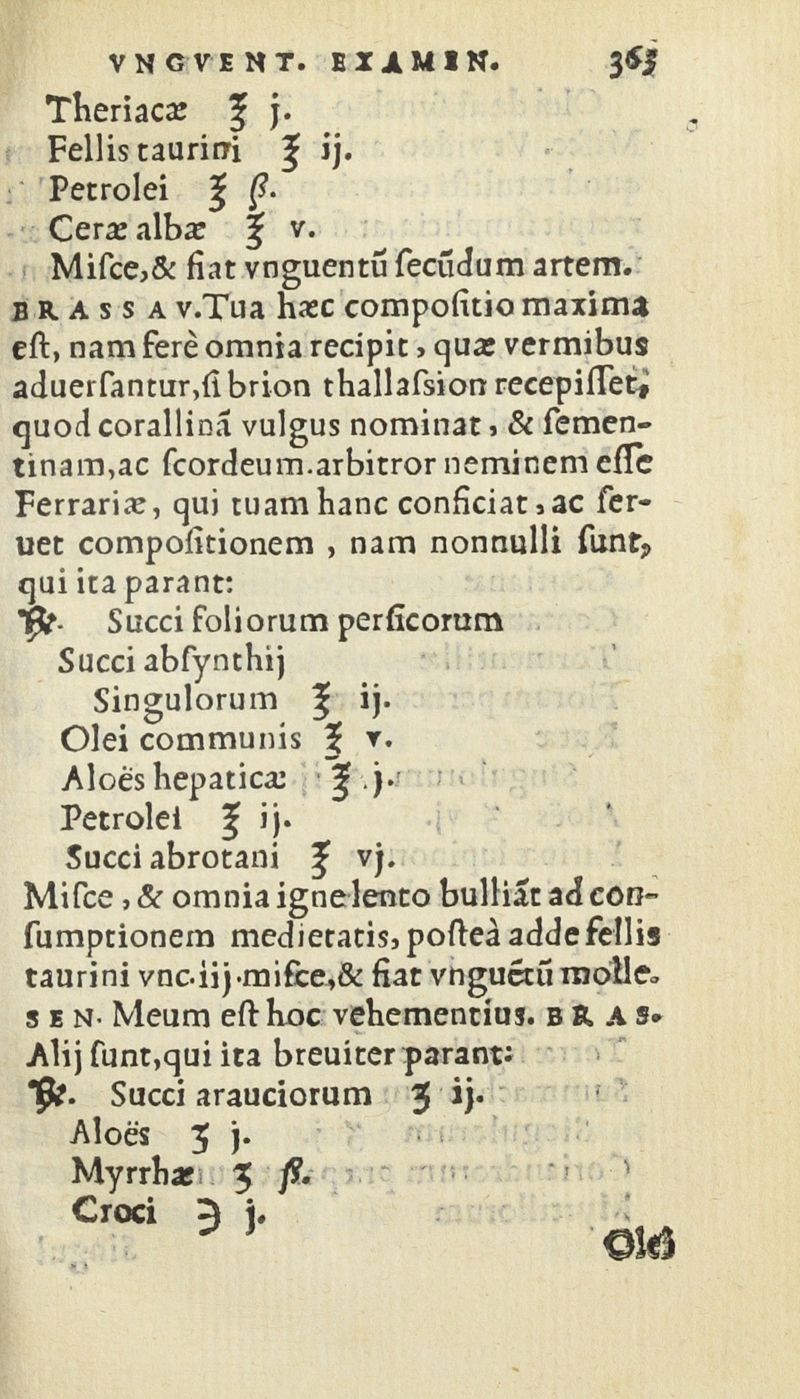 VNGVENT. EXAMEN. 365
Theriacæ ℥ j.
Fellis taurini ℥ ij.
Petrolei ℥ ß.
Ceræ albæ ℥ v.
Miſce,& fiat vnguentũ ſecũdum artem.
BRASSAV.Tua hæc compoſitio maxima
eſt, nam ferè omnia recipit, quæ vermibus
aduerſantur,ſi brion thallaſsion recepiſſet,
quod corallinã vulgus nominat, & ſemen-
tinam,ac ſcordeum.arbitror neminem eſſe
Ferrariæ, qui tuam hanc conficiat, ac ſer-
uet compoſitionem , nam nonnulli ſunt,
qui ita parant:
℞. Succi foliorum perſicorum
Succi abſynthij
Singulorum ℥ ij.
Olei communis ℥ v.
Aloës hepaticæ ℥ j.
Petrolei ℥ ij.
Succi abrotani ℥ vj.
Miſce, & omnia igne lento bulliãt ad con-
ſumptionem medietatis, poſteà adde fellis
taurini vnc.iij.miſce,& fiat vnguẽtũ molle.
SEN. Meum eſt hoc vehementius. BRAS.
Alij ſunt,qui ita breuiter parant:
℞. Succi arauciorum ʒ ij.
Aloës ʒ j.
Myrrhæ ʒ ß.
Croci ℈ j.